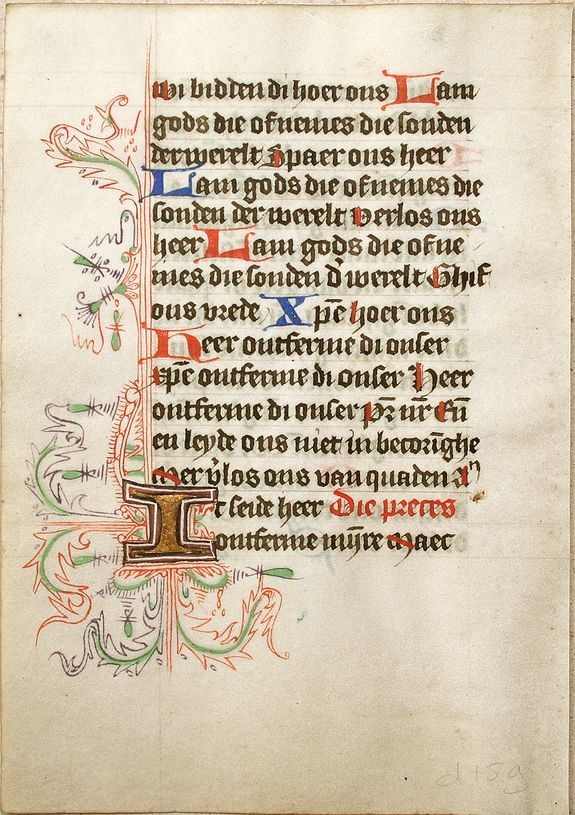 wi bidden di hoer ons Lam
gods die of nemes die sonden
der werelt Spaer ons heer
Lam gods die of nemes die
sonden der werelt verlos ons
heer Lam gods die of ne
mes die sonden d' werelt Ghif
ons vrede Xp̄e hoer ons
Heer ontferme di onser
xp̄e ontferme di onser Heer
ontferme di onser Pr̄ nr̄ En̄
en leyde ons niet in becorīghe
Mer v'los ons van quaden
Ic seide heer Die preces
ontferme mȳre Maec
d 159